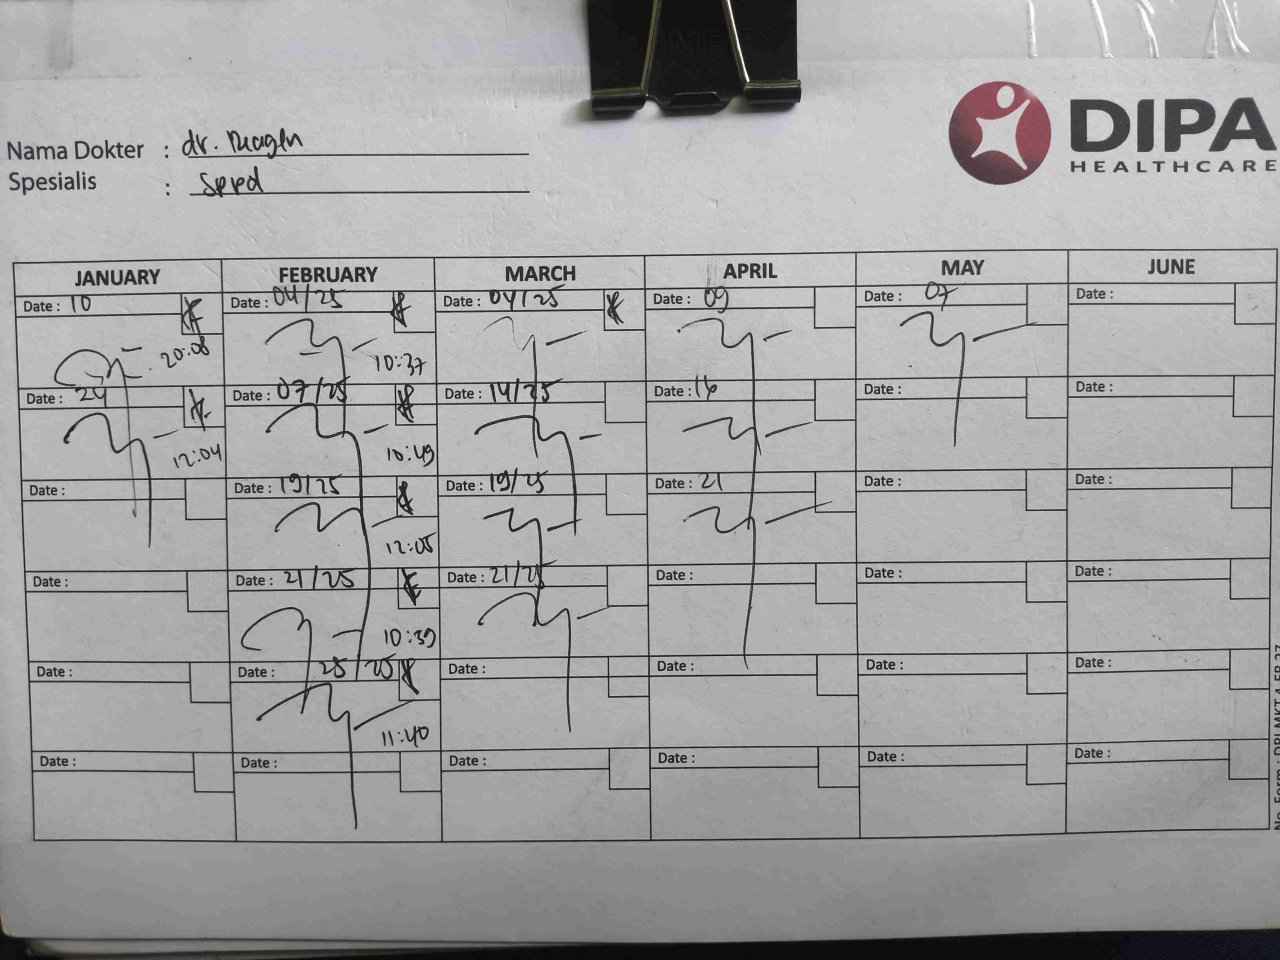 DIPA
HEALTHCARE
Nama Dokter : dr.
Spesialis : Sppd
JANUARY FEBRUARY MARCH APRIL MAY JUNE
Date : 10 Date : 04/25 Date : 04/25 Date : 09 Date : 07 Date :
20:08 10:37
Date : 24 Date : 07/25 Date : 14/25 Date : 16 Date : Date :
12:04 10:49
Date : Date : 19/25 Date : 19/25 Date : 21 Date : Date :
12:05
Date : Date : 21/25 Date : 21/25 Date : Date : Date :
10:39
Date : Date : 25 25 Date : Date : Date : Date :
11:40
Date : Date : Date : Date : Date : Date :